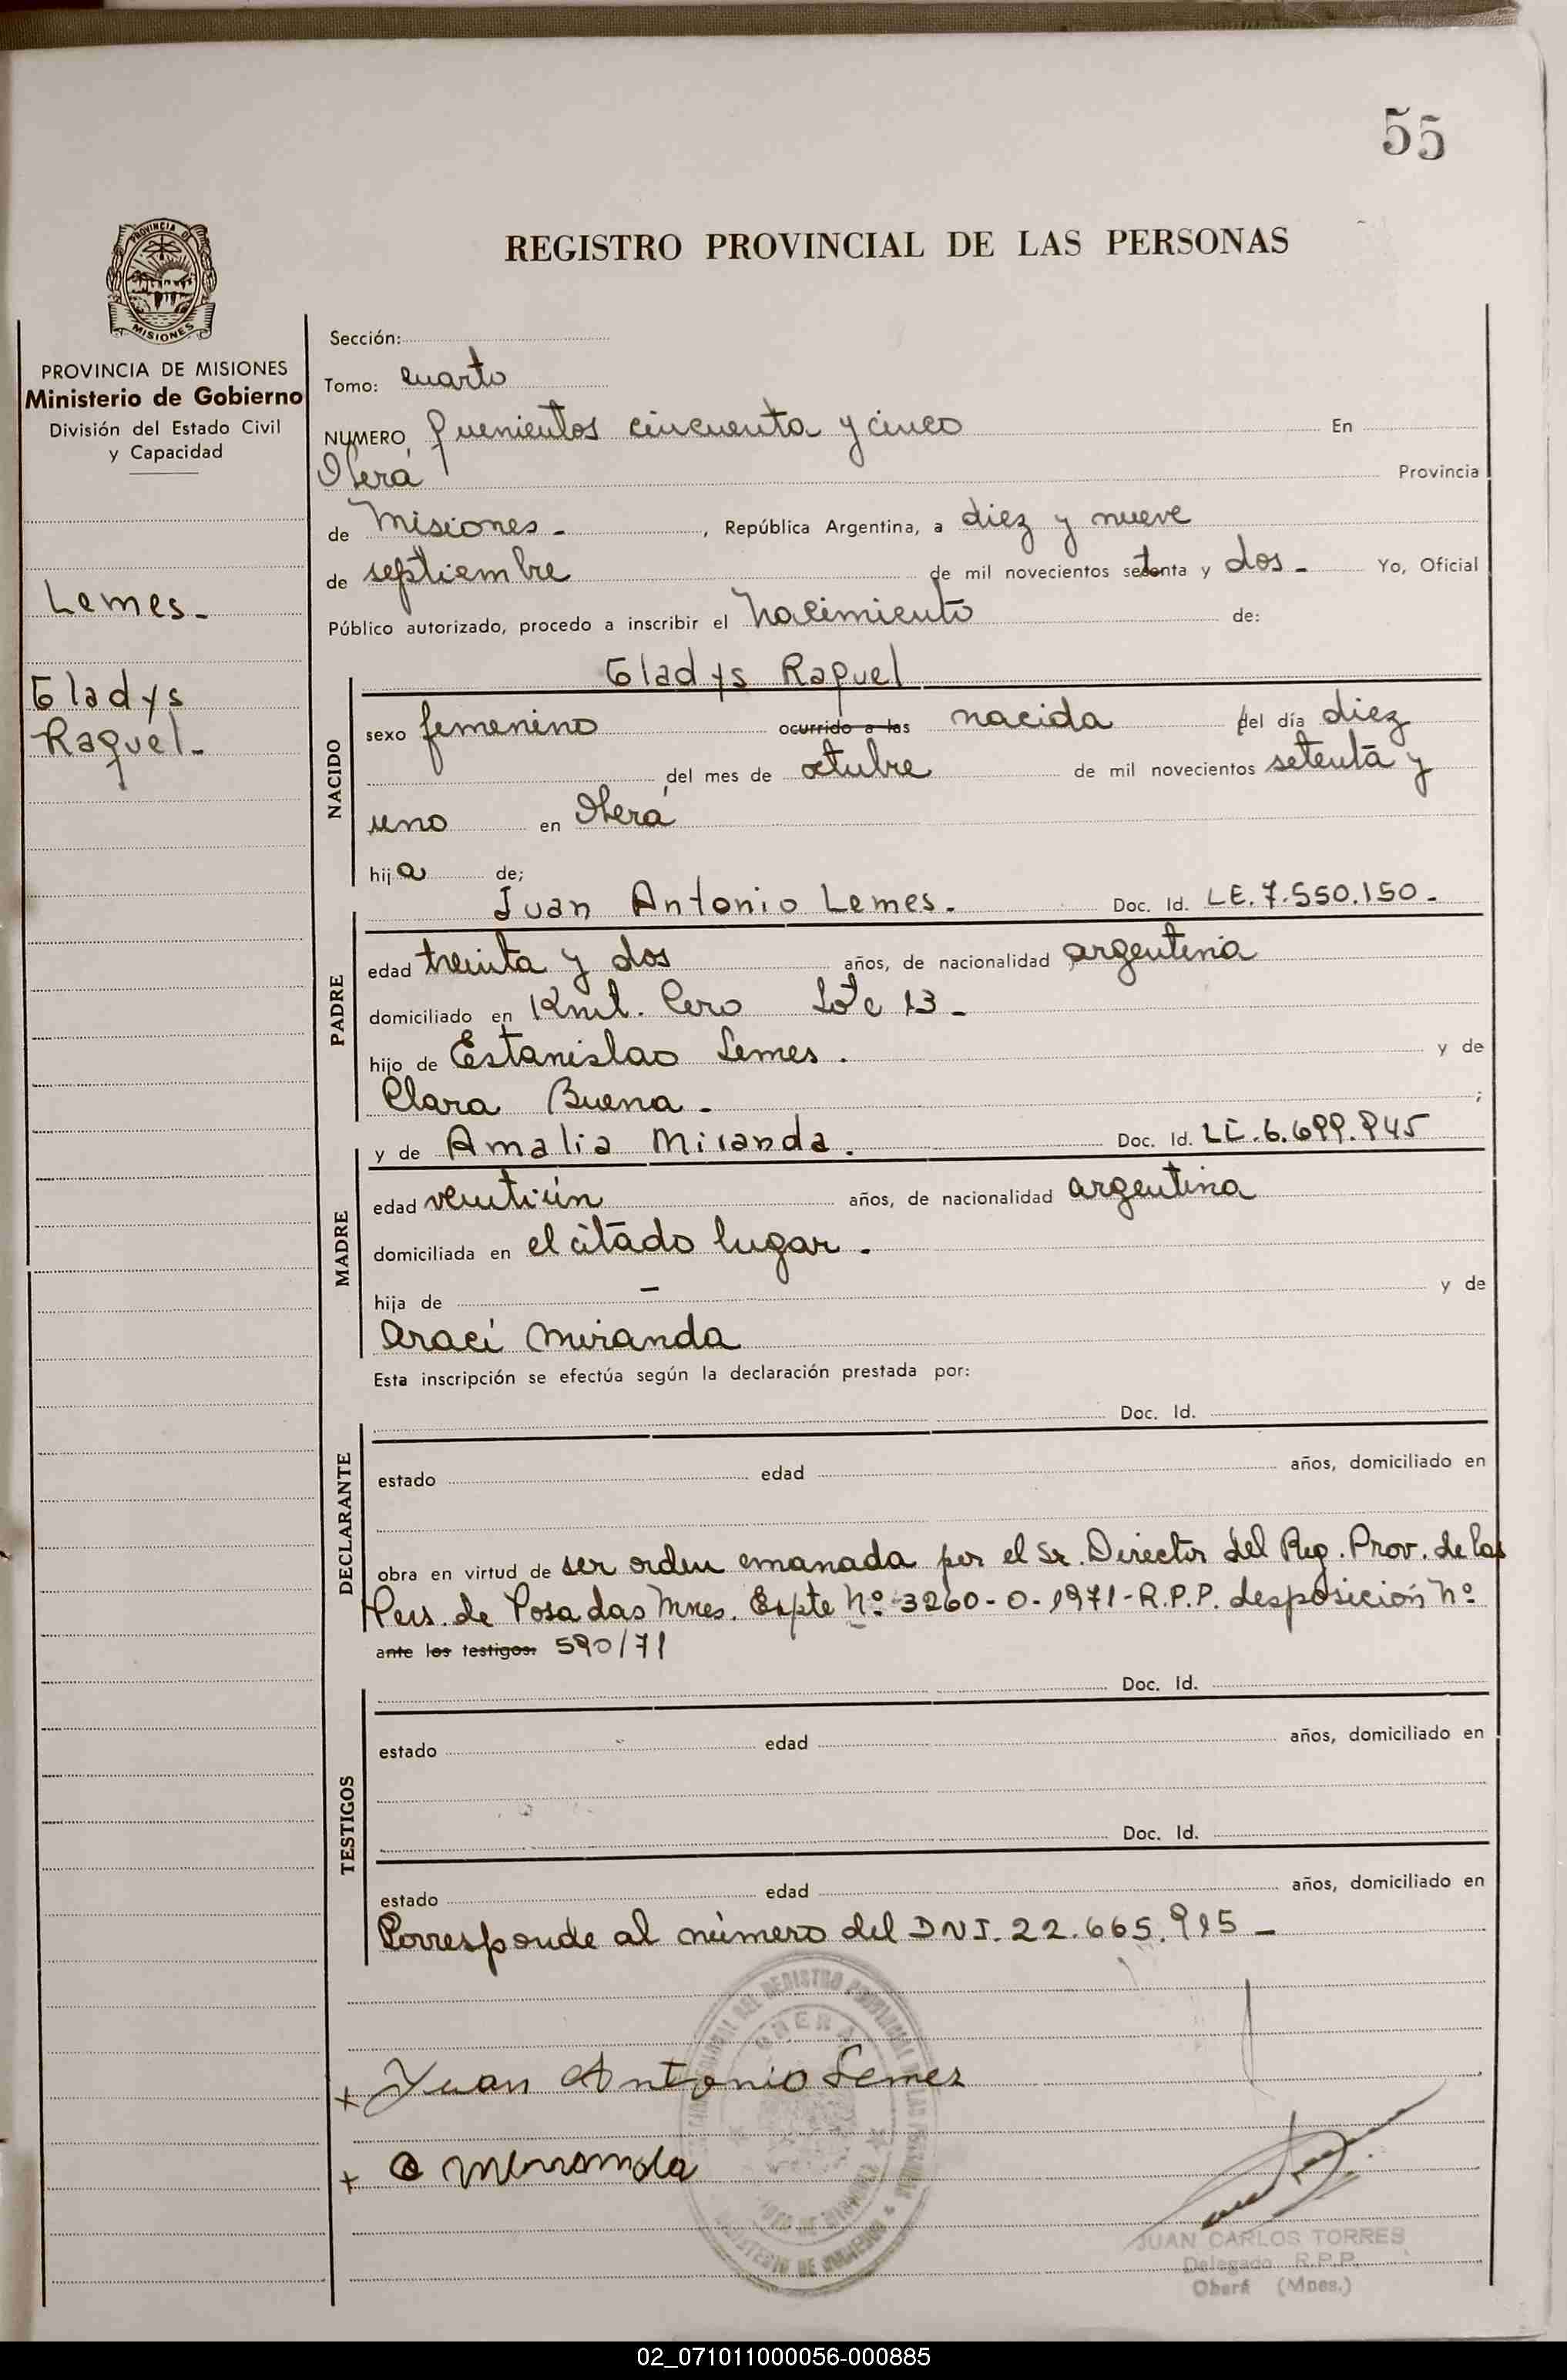 55
REGISTRO PROVINCIAL DE LAS PERSONAS
PROVINCIA DE MISIONES
Ministerio de Gobierno
División del Estado Civil
y Capacidad
Lemes-
Gladys
Raquel-
Sección:
Tomo: cuarto
NUMERO quinientos cincuenta y cinco En
Oberá Provincia
de Misiones- , República Argentina, a diez y nueve
de septiembre de mil novecientos setenta y dos- Yo, Oficial
Público autorizado, procedo a inscribir el Nacimiento de:
Gladys Raquel
NACIDO
sexo femenino ocurrido a las nacida del día diez
del mes de octubre de mil novecientos setenta y
uno en Oberá
hija de;
Juan Antonio Lemes- Doc. Id. LE.7.550.150-
PADRE
edad treinta y dos años, de nacionalidad argentina
domiciliado en Kml. Cero Lote 13-
hijo de Estanislao Lemes. y de
Clara Buena- ;
y de Amalia Miranda. Doc. Id. 6.699.845
MADRE
edad veintiún años, de nacionalidad argentina
domiciliada en el citado lugar.
hija de - y de
Araci Miranda
Esta inscripción se efectúa según la declaración prestada por:
Doc. Id.
DECLARANTE
estado edad años, domiciliado en
obra en virtud de ser orden emanada por el Sr. Director del Reg. Prov. de las
Pers. de Posadas Mnes. Expte Nº 3260-0-1971-R.P.P. desposición Nº
ante los testigos: 590/71
Doc. Id.
TESTIGOS
estado edad años, domiciliado en
Doc. Id.
estado edad años, domiciliado en
Corresponde al número del DNI. 22.665.915-
+ Juan Antonio Lemez
+ a Miranda
JUAN CARLOS TORRES
Delegado R.P.P.
Oberá (Mnes.)
02_071011000056-000885